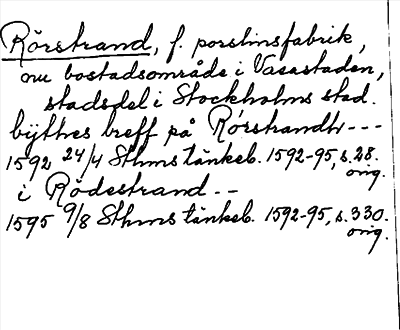 Rörstrand, f. porslinsfabrik,
nu bostadsområde i Vasastaden,
stadsdel i Stockholms stad.
byttes breff på Rörstrandh ---
1592 24/4 Sthms tänkeb. 1592-95, s. 28.
orig.
i Rödestrand --
1595 9/8 Sthms tänkeb. 1592-95, s. 330.
orig.